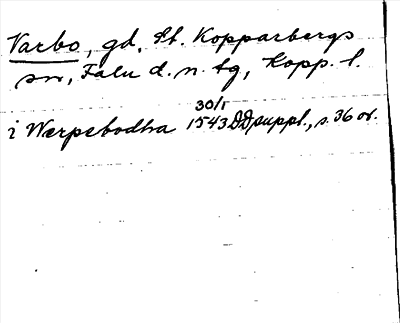 Varbo, gd, St. Kopparbergs
sn, Falu d. n. tg, Kopp. l.
i Werpebodha 30/1 1543 DD suppl., s. 36 or.